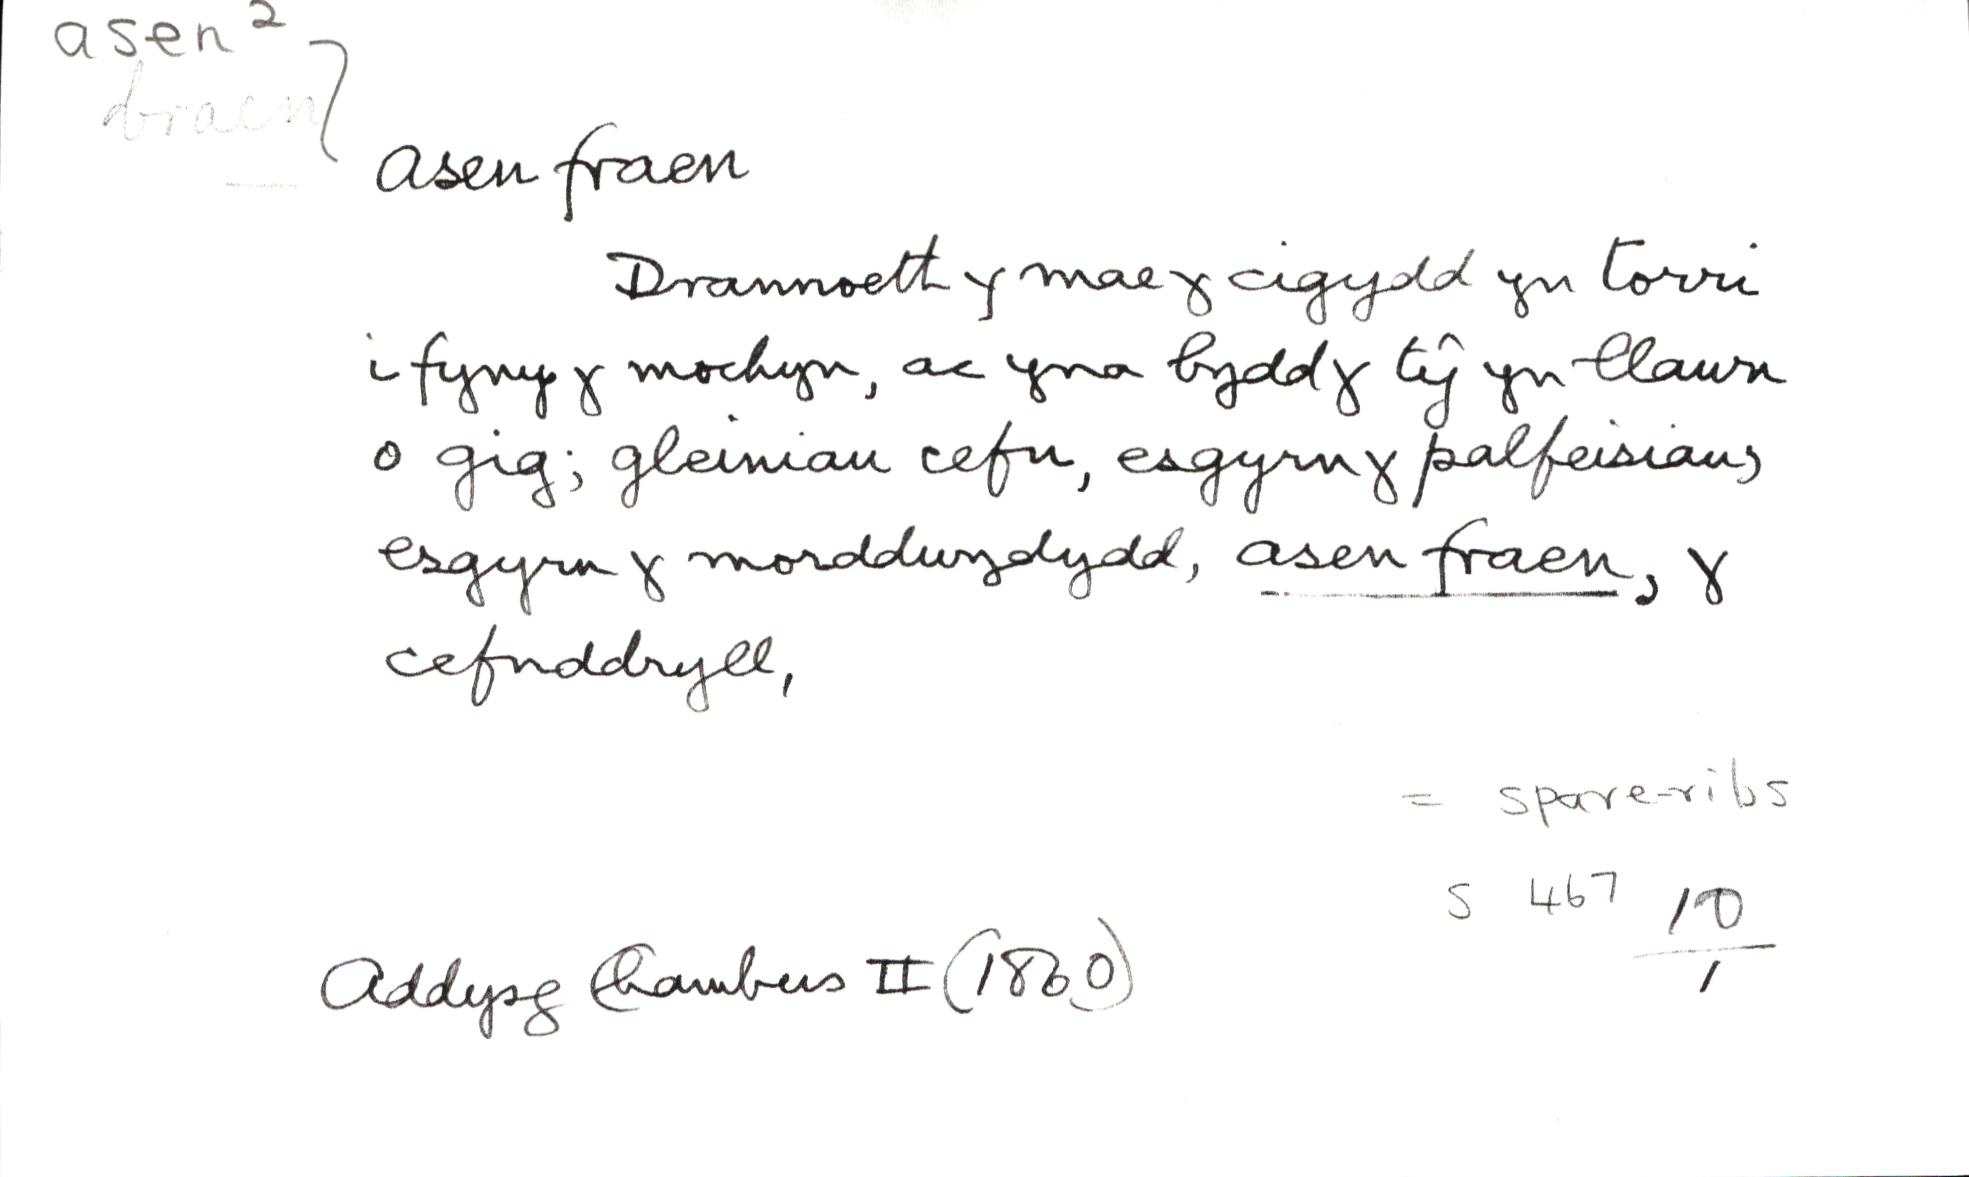 asen²
braen
asen fraen
Drannoeth y mae y cigydd yn torri
i fyny y mochyn, ac yna bydd y tŷ yn llawn
o gig; gleiniau cefn, esgyrn y palfeisiau,
esgyrn y morddwydydd, asen fraen, y
cefnddryll,
= spare-ribs
S 467 10
1
Addysg Chambers II (1860)